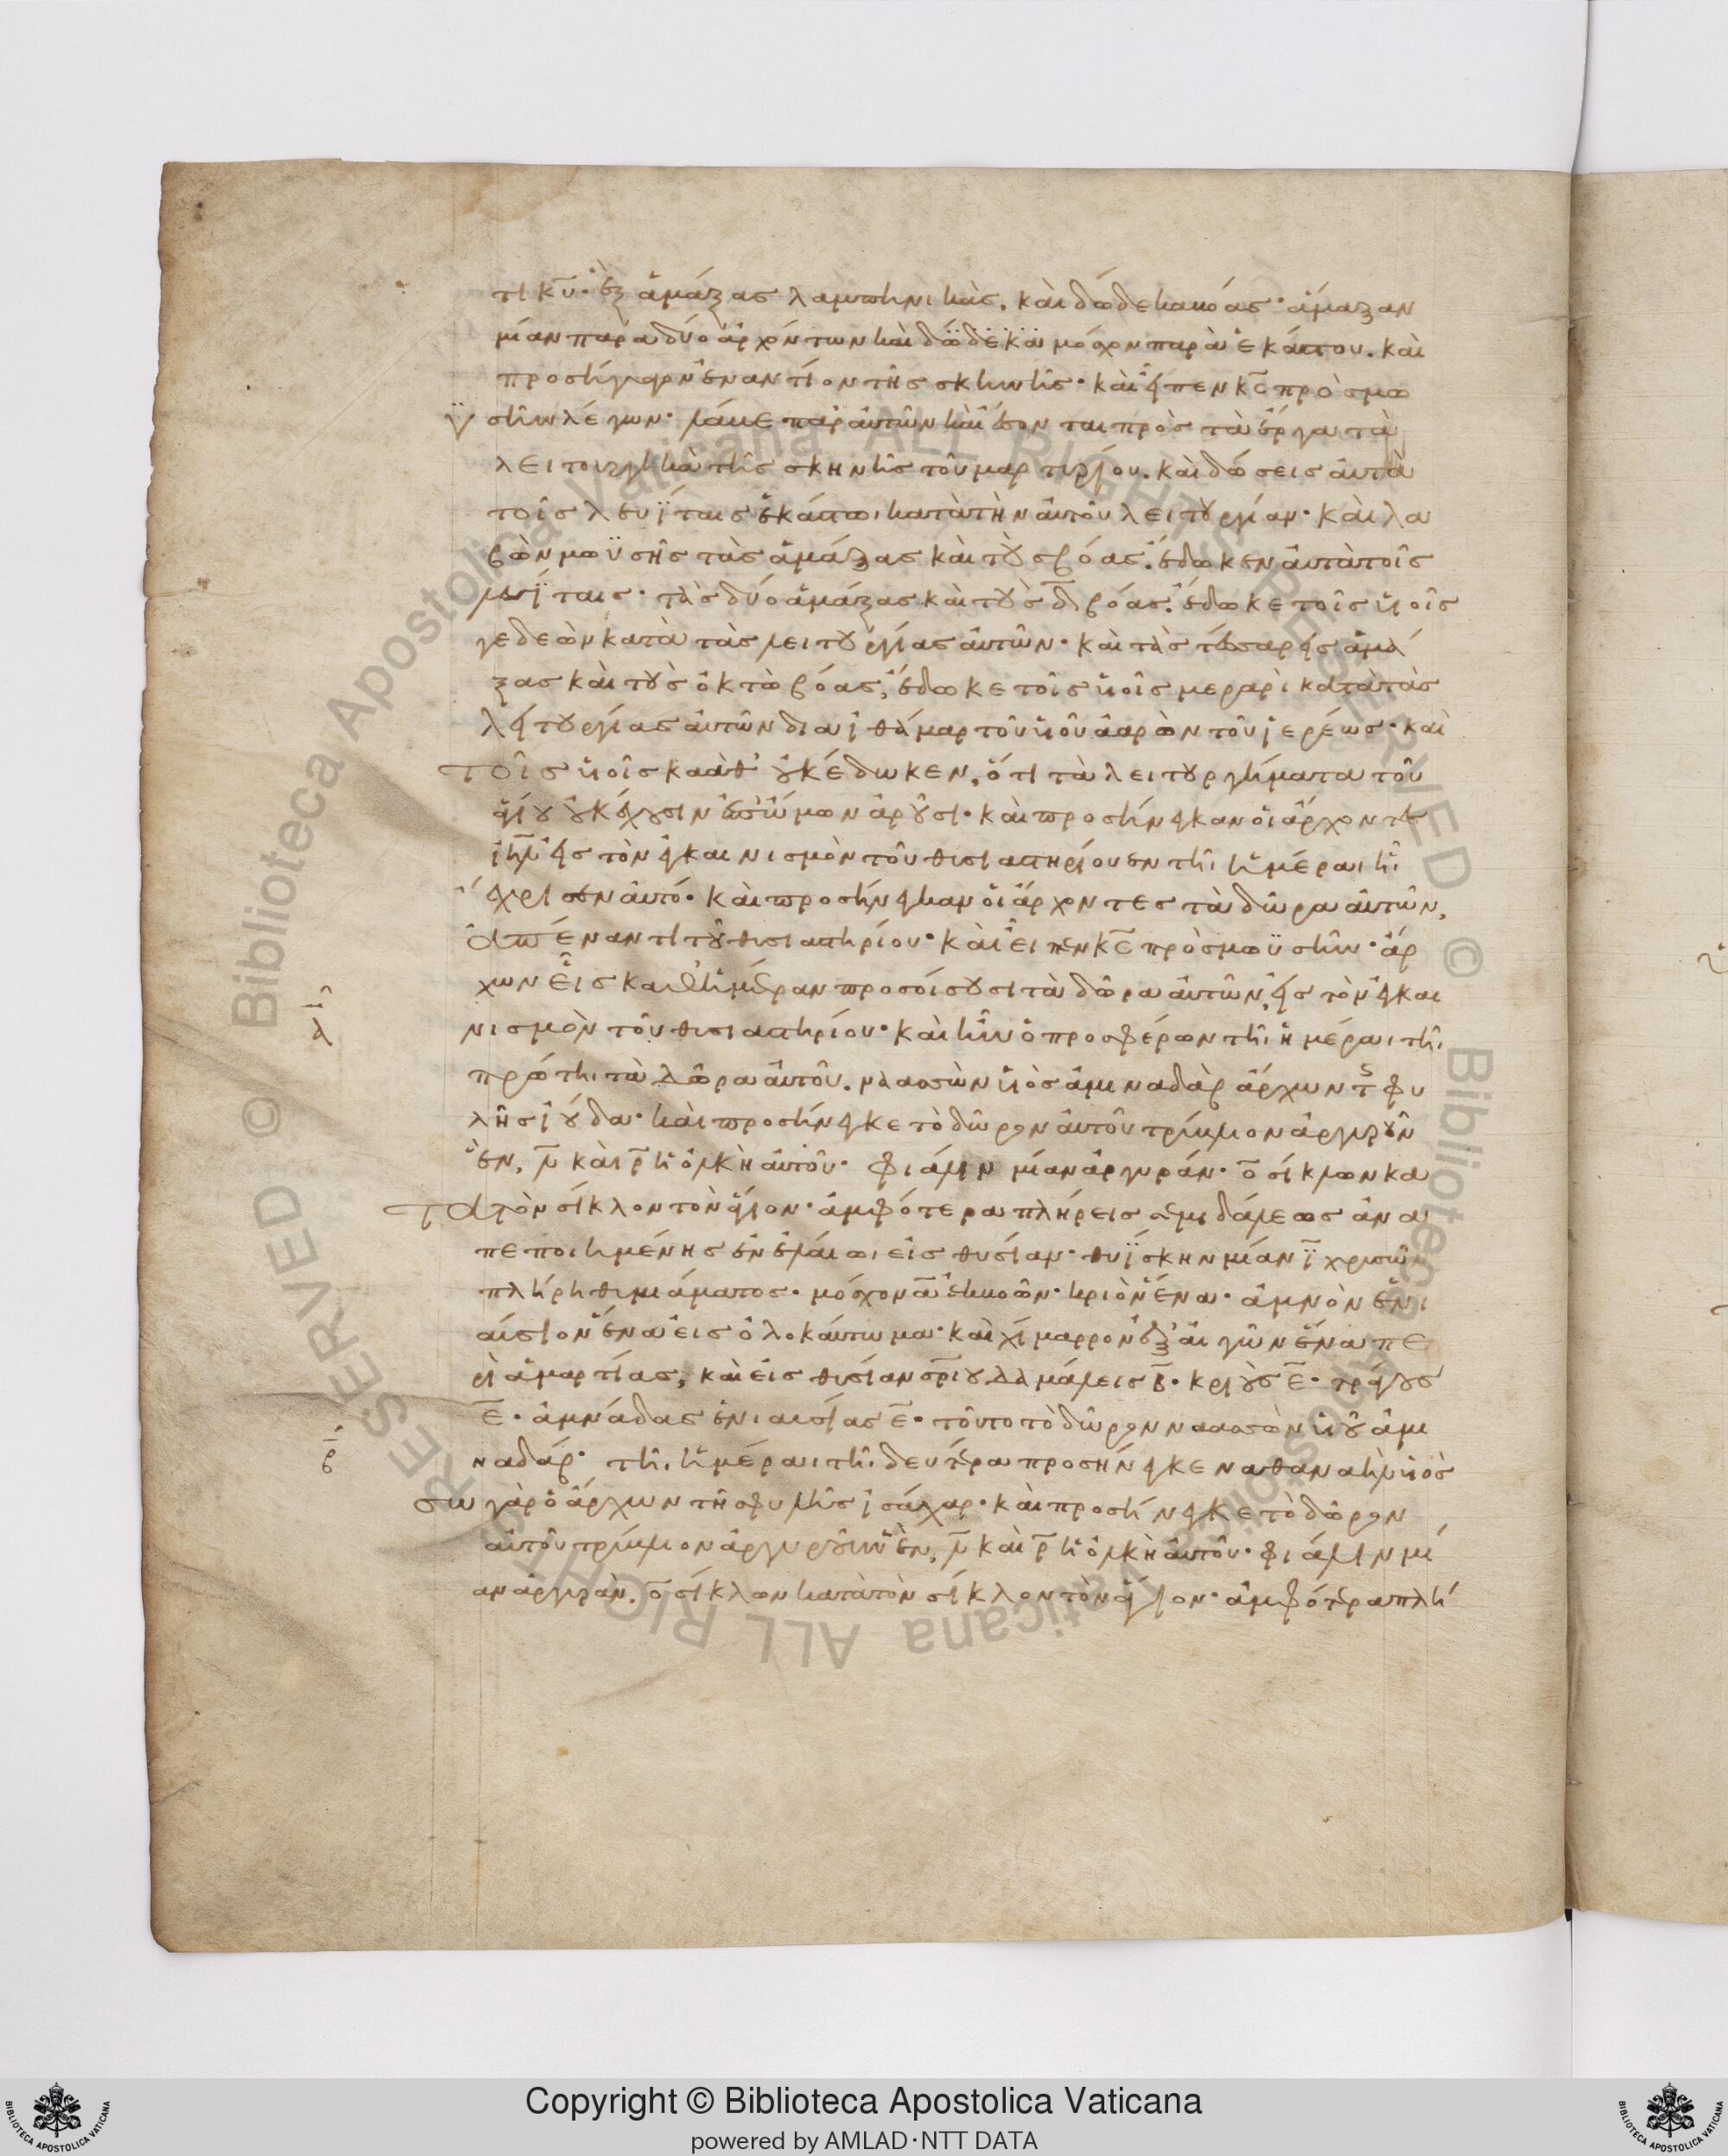 τι κῡ· ἓξ ἁμάξας λαμπηνικάς. καὶ δώδεκα βόας· ἅμαξαν
μίαν παρὰ δύο ἀρχόντων καὶ δώδεκα μόσχον παρὰ ἑκάστου. καὶ
προσήγαγον ἐναντίον τῆς σκηνῆς· καὶ εἶπεν κ̅ς̅ πρὸς μω
ϋσῆν λέγων· λάβε παρ αὐτῶν καὶ ἔσονται πρὸς τὰ ἔργα τὰ
λειτουργικὰ τῆς σκηνῆς τοῦ μαρτυρίου. καὶ δώσεις αὐτὰ
τοῖς λευΐταις ἑκάστωι κατὰ τὴν αὐτοῦ λειτουργίαν· καὶ λα
βὼν μωϋσῆς τὰς ἁμάξας καὶ τοὺς βόας. ἔδωκεν αὐτὰ τοῖς
λευΐταις· τὰς δύο ἁμάξας καὶ τοὺς δ̅ βόας. ἔδωκε τοῖς υἱοῖς
γεδεὼν κατὰ τὰς λειτουργίας αὐτῶν· καὶ τὰς τέσσαρεις ἁμά
ξας καὶ τοὺς ὀκτὼ βόας, ἔδωκε τοῖς υἱοῖς μεραρὶ κατὰ τὰς
λειτουργίας αὐτῶν διὰ ἰθάμαρ τοῦ υἱοῦ ἀαρὼν τοῦ ἱερέως· καὶ
τοῖς υἱοῖς καὰθ οὐκ ἔδωκεν, ὅτι τὰ λειτουργήματα τοῦ
ἁγίου οὐκ ἔχουσιν ἐπ ὤμων ἀροῦσι· καὶ προσήνεικαν οἱ ἄρχοντες
ι̅η̅λ̅ εἰς τὸν ἐγκαινισμὸν τοῦ θυσιαστηρίου ἐν τῆι ἡμέραι ἧι
ἔχρισεν αὐτό· καὶ προσήνεγκαν οἱ ἄρχοντες τὰ δῶρα αὐτῶν,
ἀπέναντι τοῦ θυσιαστηρίου· καὶ εἶπεν κ̅ς̅ πρὸς μωϋσῆν· ἄρ
χων εἷς καθ ἡμέραν προσοίσουσι τὰ δῶρα αὐτῶν, εἰς τὸν ἐγκαι
νισμὸν τοῦ θυσιαστηρίου· καὶ ἦν ὁ προσφέρων τῆι ἡμέραι τῆι
πρώτηι τὰ δῶρα αὐτοῦ. ναασσὼν υἱὸς ἀμιναδὰβ ἄρχων τῆς φυ
λῆς ἰούδα· καὶ προσήνεγκε τὸ δῶρον αὐτοῦ τρύβλιον ἀργυροῦν
ἕν, λ̅ καὶ ρ̅ ἡ ὁλκὴ αὐτοῦ· φιάλην μίαν ἀργυρᾶν· ο̅ σίκλων κα
τὰ τὸν σίκλον τὸν ἅγιον· ἀμφότερα πλήρεις σεμιδάλεως ἀνα
πεποιημένης ἐν ἐλαίωι εἰς θυσίαν· θυΐσκην μίαν ι̅ χρυσῶν
πλήρη θυμιάματος· μόσχον α̅ ἐκ βοῶν· κριὸν ἕνα· ἀμνὸν ἐνι
αύσιον ἕνα εἰς ὁλοκαύτωμα· καὶ χίμαρρον ἐξ αἰγῶν ἕνα πε
ρὶ ἁμαρτίας, καὶ εἰς θυσίαν σριου δαμάλεις β̅· κριοὺς ε̅· τράγους
ε̅· ἀμνάδας ἐνιαυσίας ε̅· τοῦτο τὸ δῶρον ναασσὼν υἱοῦ ἀμι
ναδάβ· τῆι ἡμέραι τῆι δευτέρα προσήνεγκε ναθαναὴλ υἱὸς
σωγὰρ ὁ ἄρχων τῆς φυλῆς ἰσάχαρ· καὶ προσήνεγκε τὸ δῶρον
αὐτοῦ τρύβλιον ἀργυροῦν ἕν, λ̅ καὶ ρ̅ ἡ ὁλκὴ αὐτοῦ· φιάλην μί
αν ἀργυρᾶν. ο̅ σίκλων κατὰ τὸν σίκλον τὸν ἅγιον· ἀμφότερα πλή
Copyright © Biblioteca Apostolica Vaticana
powered by AMLAD·NTT DATA